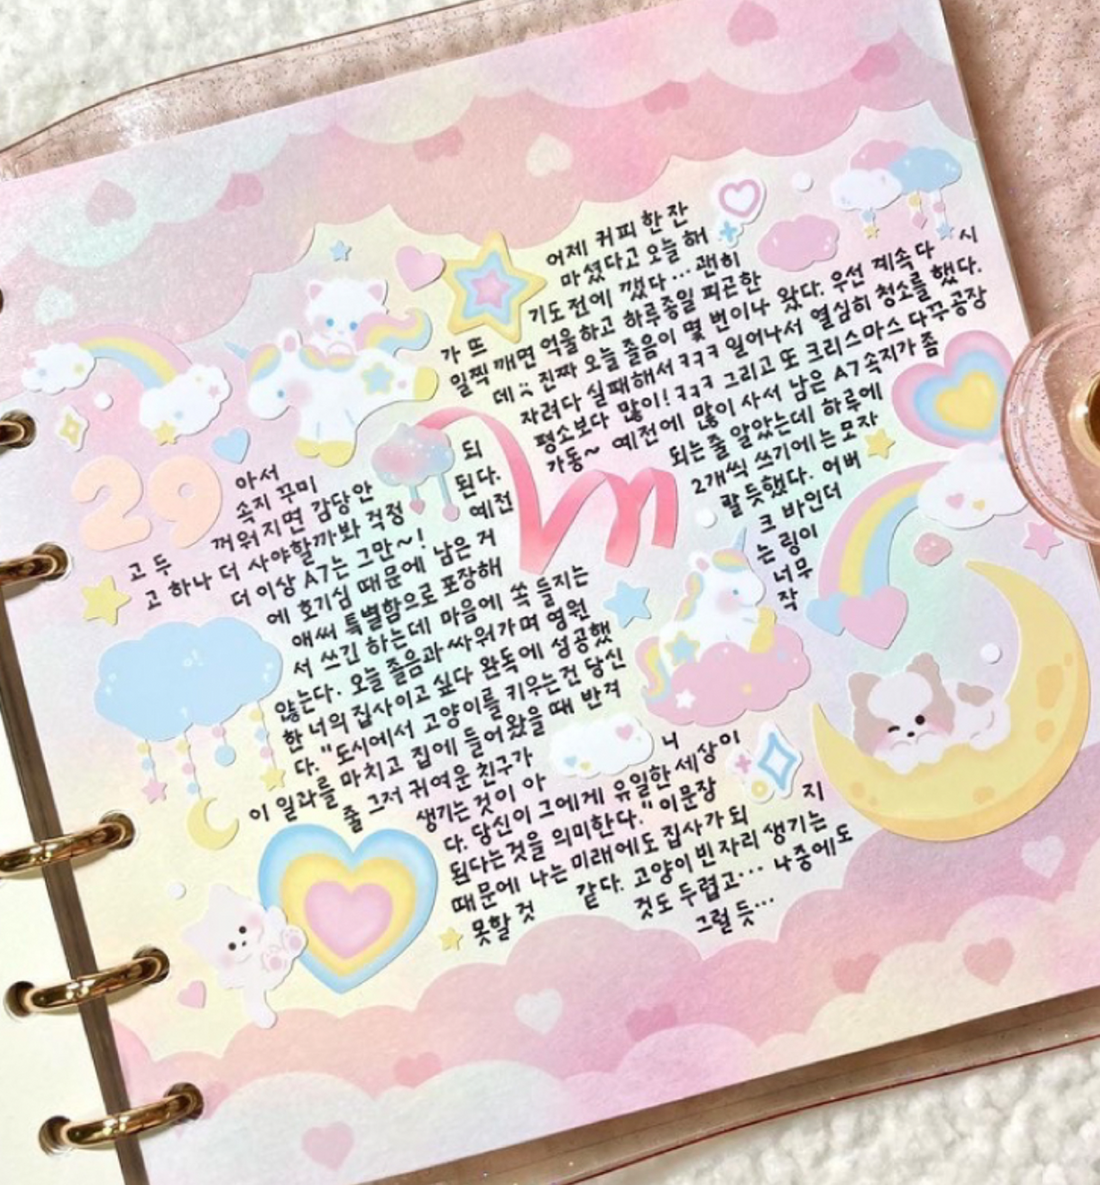 어제 커피 한 잔
마셨다고 오늘 해
가 뜨 기도 전에 깼다... 괜히
일찍 깨면 억울하고 하루종일 피곤한
데;; 진짜 오늘 졸음이 몇 번이나 왔다. 우선 계속 다 시
자려다 실패해서 ㅋㅋㅋ 일어나서 열심히 청소를 했다.
평소보다 많이! ㅋㅋㅋ 그리고 또 크리스마스 다꾸공장
가동~ 예전에 많이 사서 남은 A7속지가 좀
되는줄 알았는데 하루에
2개씩 쓰기에는 모자
랄 듯했다. 어버
크 바인더
는 링이
너무
작
29
아서
속지 꾸미
고 두 꺼워지면 감당안 되
고 하나 더 사야할까봐 걱정 된다.
더 이상 A7는 그만~! 예전
에 호기심 때문에 남은 거
애써 특별함으로 포장해
서 쓰긴 하는데 마음에 쏙 들지는
않는다. 오늘 졸음과 싸워가며 영원
한 너의 집사이고 싶다 완독에 성공했
다. "도시에서 고양이를 키우는건 당신
이 일과를 마치고 집에 들어왔을 때 반겨
줄 그저 귀여운 친구가
생기는 것이 아 니
다. 당신이 그에게 유일한 세상이
된다는 것을 의미한다." 이문장
때문에 나는 미래에도 집사가 되 지
못할 것 같다. 고양이 빈 자리 생기는
것도 두렵고... 나중에도
그럴 듯...